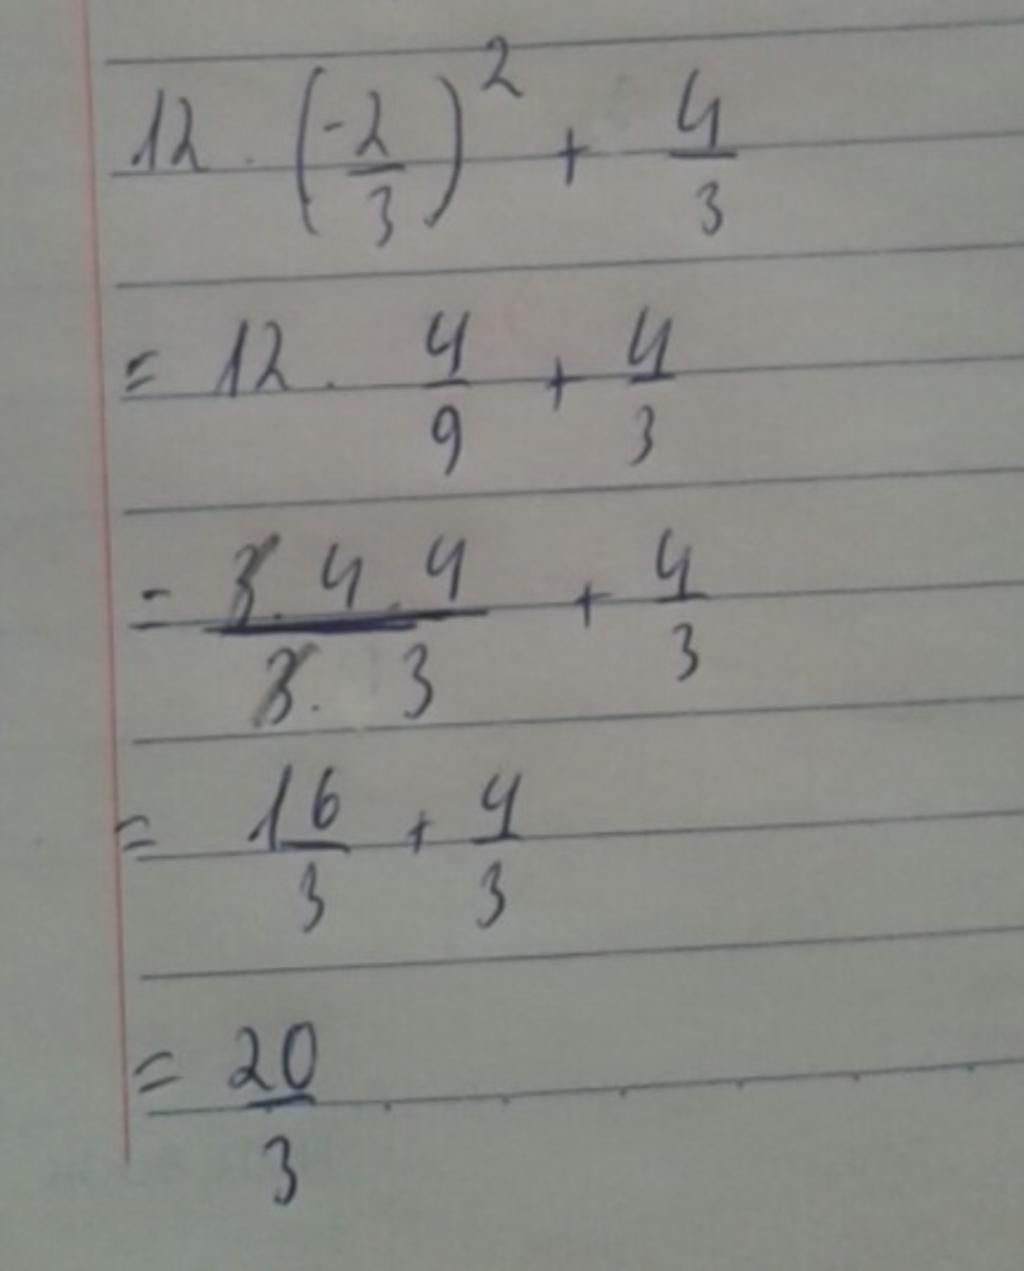 12 . (-2/3)^2 + 4/3
= 12 . 4/9 + 4/3
= 3 . 4 . 4 / 3 . 3 + 4/3
= 16/3 + 4/3
= 20/3